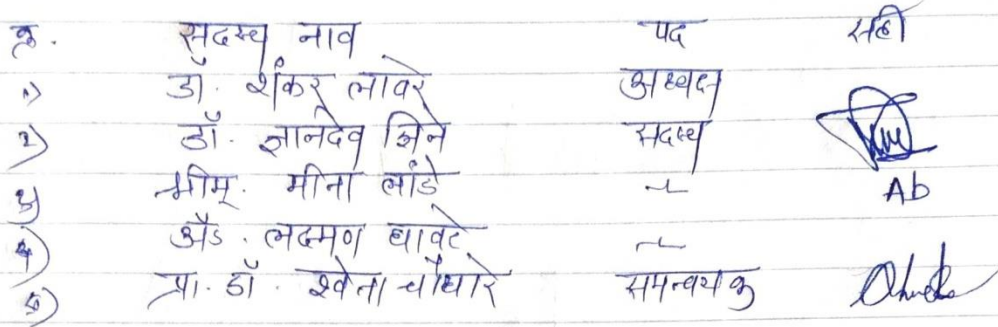 क्र. सदस्य नाव पद सही
१) डॉ. शंकर लावरे अध्यक्ष
२) डॉ. ज्ञानदेव सदस्य
३) श्रीम. मीना लांडे -"- Ab
४) अॅड. लक्ष्मण घावटे -"-
५) प्रा. डॉ. श्वेता चौधारे समन्वयक